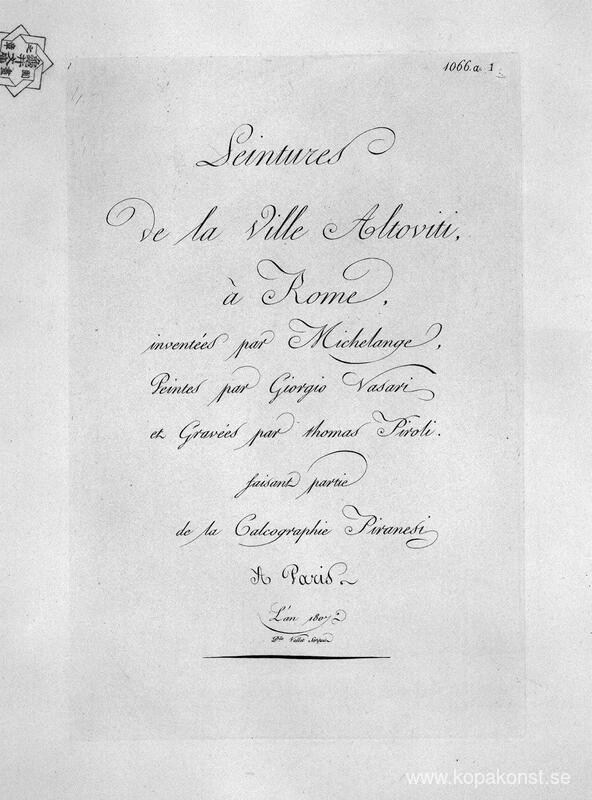 1066.a 1
Peintures
de la Ville Altoviti,
à Rome,
inventées par Michelange,
Peintes par Giorgio Vasari
et Gravées par thomas Piroli.
faisant partie
de la Calcographie Piranesi
A Paris
L'an 1807
www.kopakonst.se